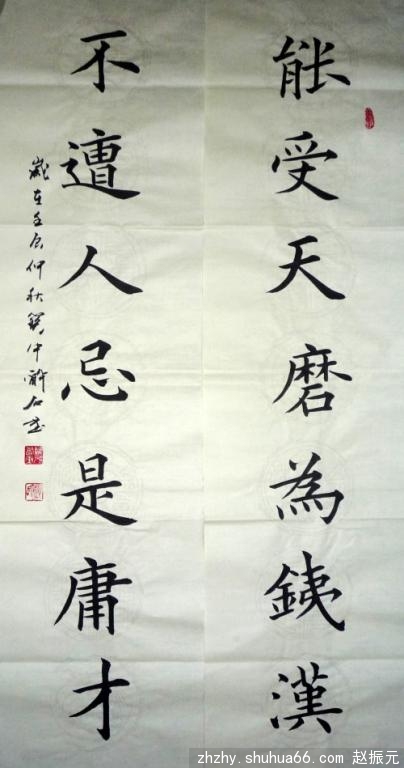 能受天磨為銕漢
不遭人忌是庸才
歲在壬辰仲秋
zhzhy.shuhua66.com 赵振元